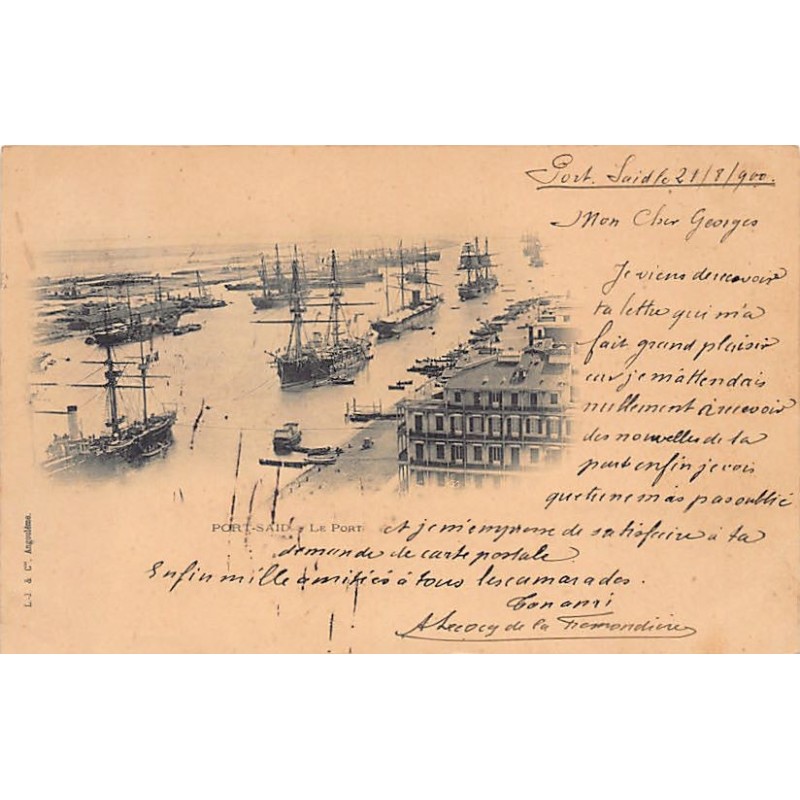 Port. Said le 21/8/900.
Mon Cher Georges
Je viens de recevoir
ta lettre qui m'a
fait grand plaisir
car je m'attendais
nullement à recevoir
des nouvelles de ta
part enfin je vois
que tu ne m'as pas oublié
PORT-SAID - LE PORT
et je m'empresse de satisfaire à ta
demande de carte postale
Enfin mille amitiés à tous les camarades.
Ton ami
A Lecocq de la Fremondière
L.-J. & Cie, Angoulême.